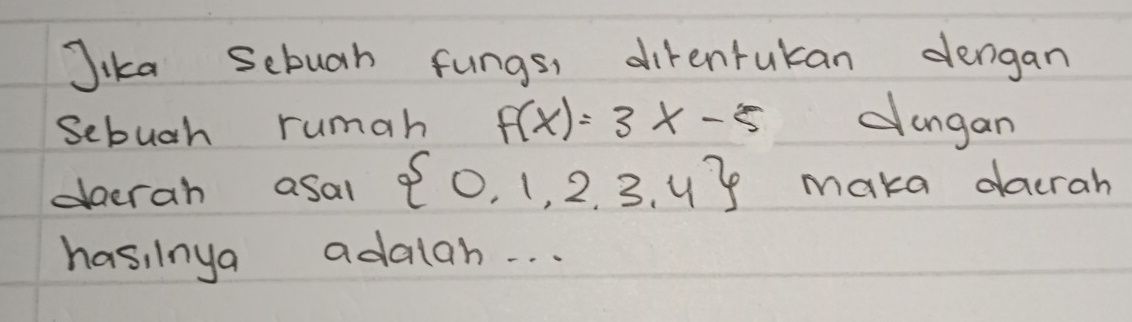 Jika sebuah fungsi ditentukan dengan
sebuah rumah f(x) = 3x - 5 dengan
daerah asal {0, 1, 2, 3, 4} maka daerah
hasilnya adalah ...